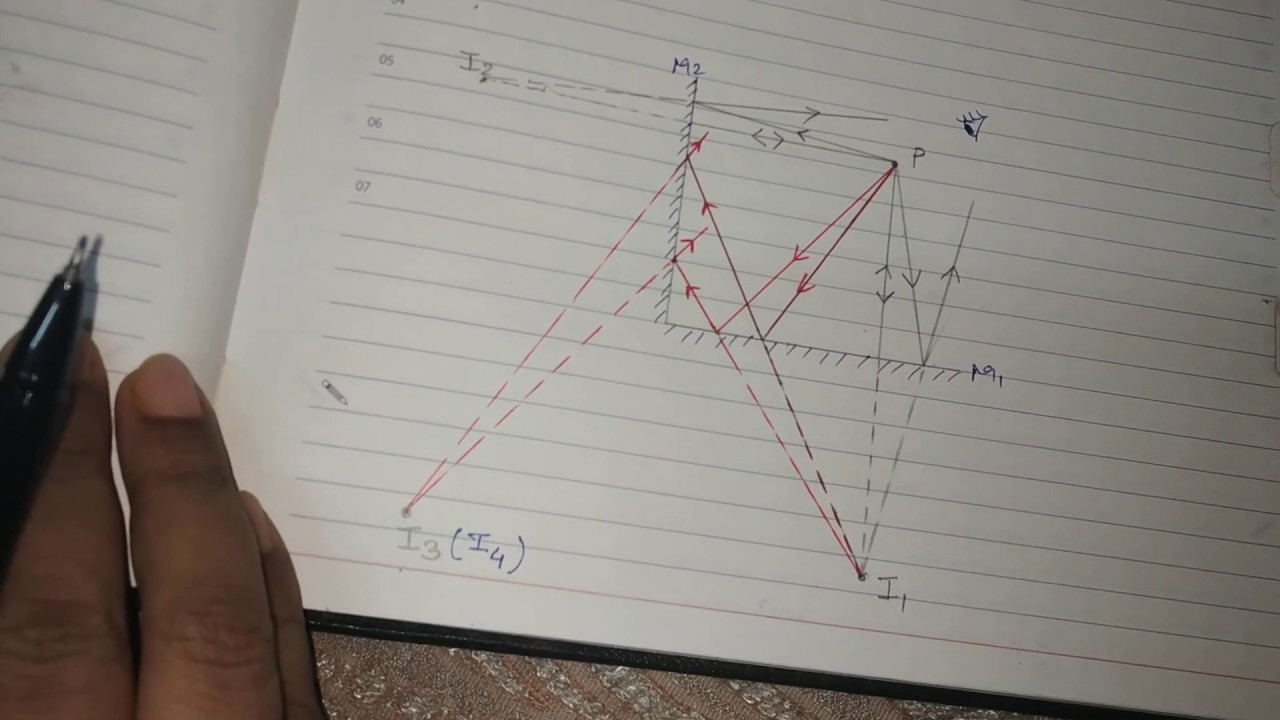 04
05
06
07
I2
M2
P
M1
I3 (I4)
I1